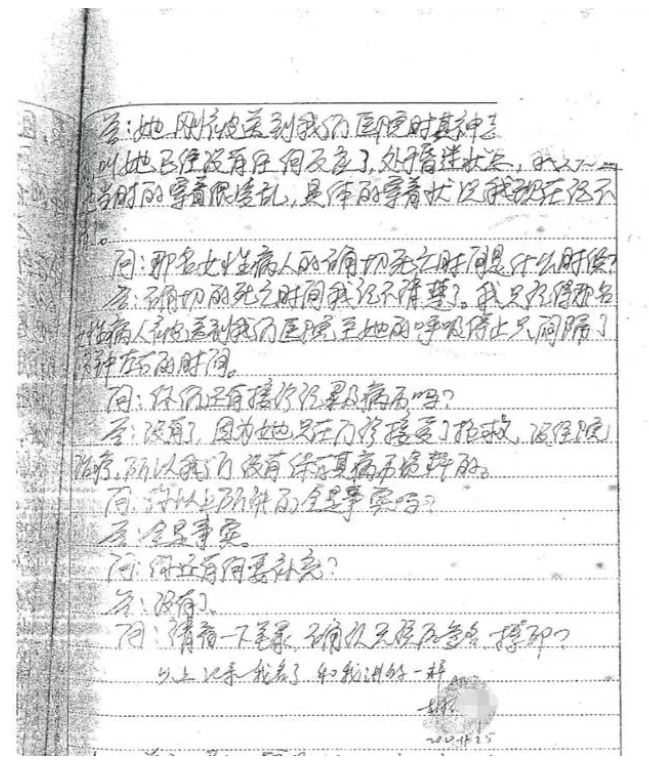 答：她刚被送到我们医院时其神
叫她已经没有任何反应了，处于昏迷状态，
当时的穿着很凌乱，具体的穿着状况我现在记不
问：那名女性病人的确切死亡时间是什么时候？
答：确切的死亡时间我记不清楚了。我只记得那名
性病人被送到我们医院至她的呼吸停止只间隔了
钟左右的时间。
问：你们还有接诊记录及病历吗？
答：没有了，因为她只在门诊接受了抢救，没住院
治疗，所以我们没有保存其病历资料的。
问：你以上所讲的全是事实吗？
答：全是事实。
问：你还有何要补充？
答：没有了。
问：请看一下笔录，确认无误后签名、捺印？
以上记录我看了和我讲的一样